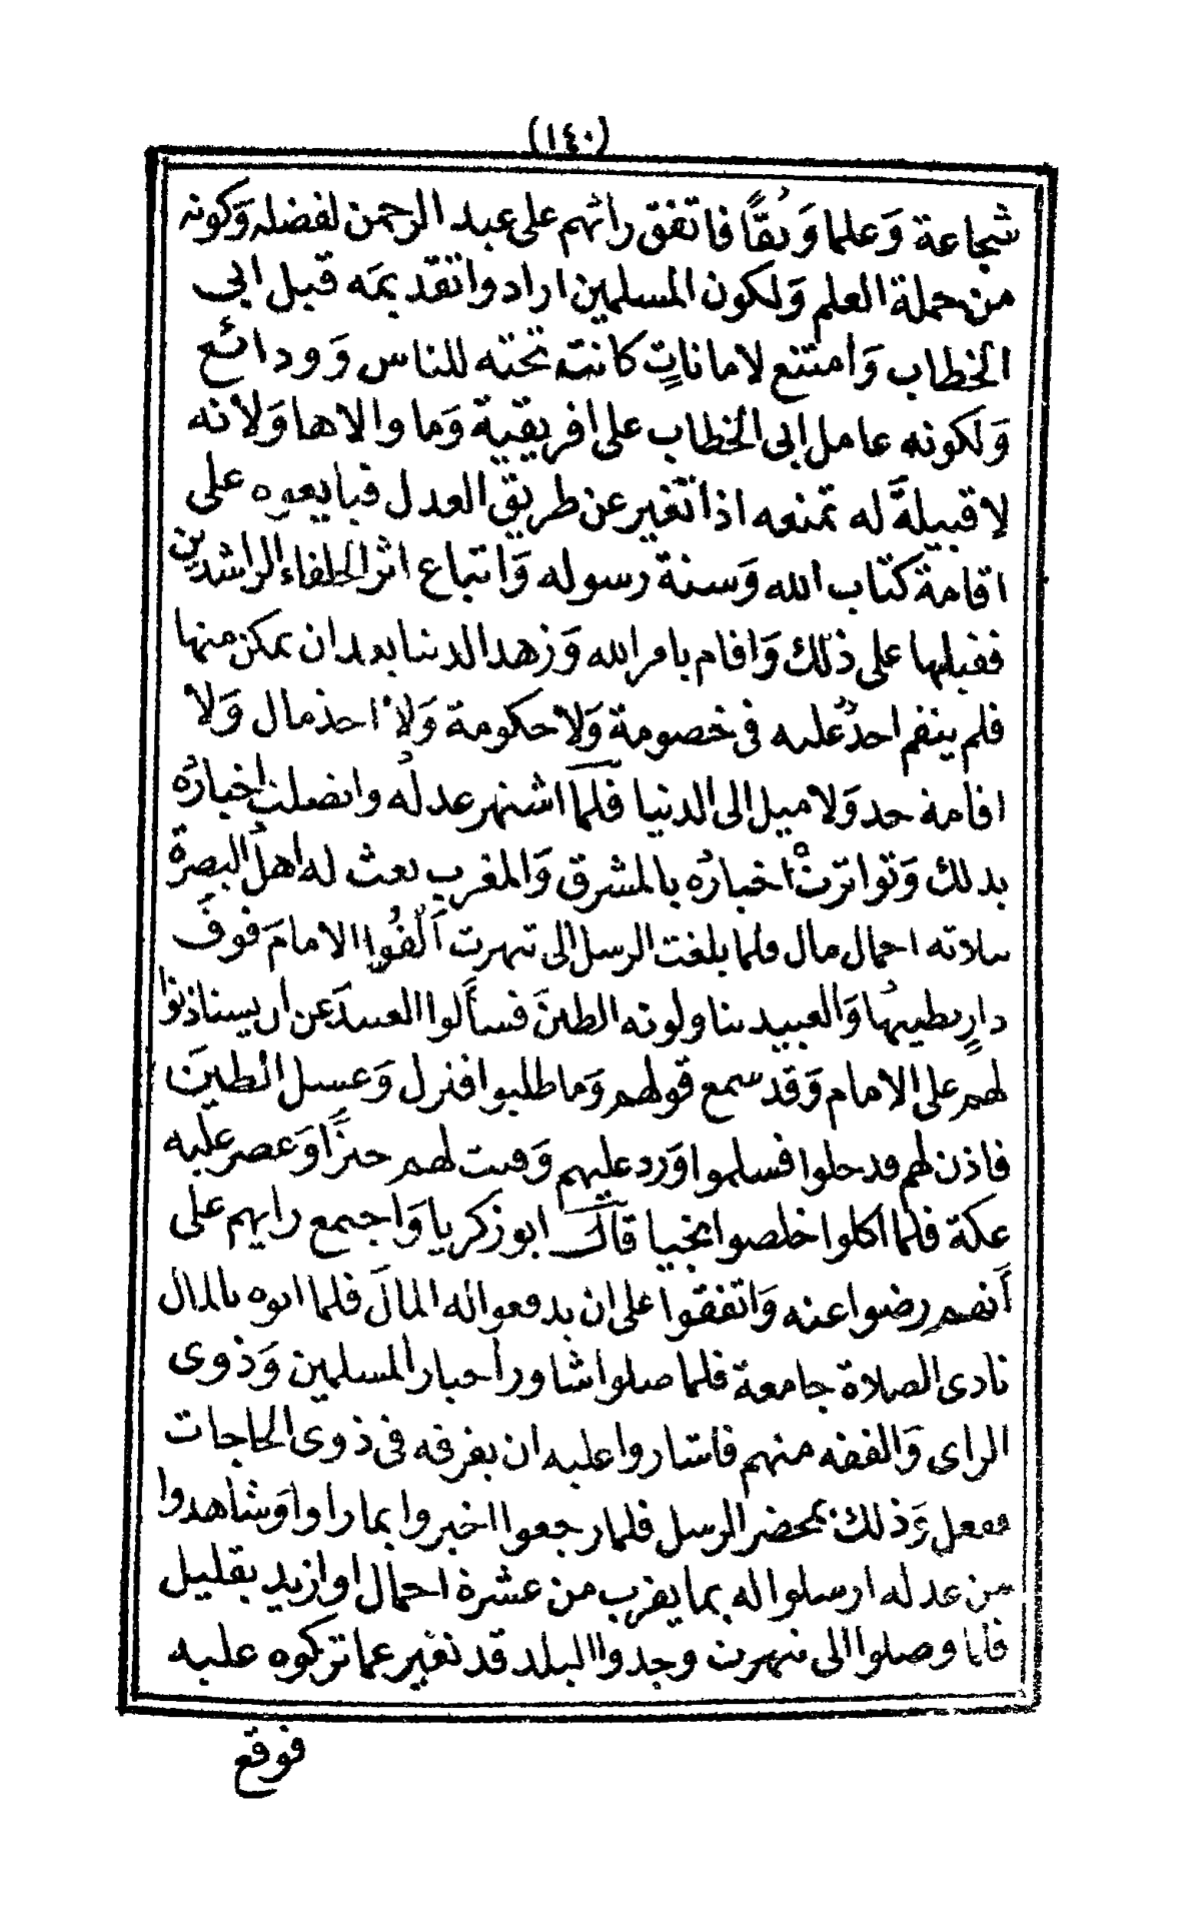 (١٤٠)
شجاعة وَعلما وَتُقًا فاتفق رائهم على عبد الرحمن لفضله وَكونه
من حملة العلم وَلكون المسلمين ارادوا تقديمَه قبل ابى
الخطاب وَامتنع لاماناتٍ كانت تحته للناس وَودائع
وَلكونه عامل ابى الخطاب على افريقية وَما والاها وَلانه
لا قبيلةَ له تمنعه اذا تغير عن طريق العدل فبايعوه على
اقامة كتاب الله وَسنة رسوله وَاتباع اثر الخلفاء الراشدين
فقبلها على ذلك وَاقام بامر الله وَزهد الدنيا بعد ان تمكن منها
فلم ينقم احدٌ عليه فى خصومة وَلا حكومة وَلا اخذ مال وَلا
اقامة حد وَلا ميل الى الدنيا فلمَّا اشتهر عدلُه واتصلت اخبارُه
بذلك وَتواترتْ اخبارُه بالمشرق وَالمغرب بعث له اهلُ البصرة
بثلاثه احمال مال فلما بلغت الرسل الى تيهرت اَلْفُوا الامامَ فوقَ
دارٍ يطيبها وَالعبيد يناولونه الطينَ فسأَلوا العبيدَ عن ان يستاذنوا
لهم على الامام وَقد سمع قولهم وَما طلبوا فنزل وَغسل الطينَ
فاذن لهم فدخلوا فسلموا وَرد عليهم وَفتت لهم خبزًا وَعصر عليه
عكة فلما اكلوا خلصوا نجيا قال ابو زكريا وَاجتمع رايهم على
أَنهم رضوا عنه وَاتفقوا على ان يدفعوا له المالَ فلما اتوه بالمال
نادى الصلاة جامعة فلما صلوا شاور أخيار المسلمين وَذوى
الراى وَالفقه منهم فاشاروا عليه ان يفرقه فى ذوى الحاجات
ففعل وَذلك بمحضر الرسل فلما رجعوا اخبروا بما راوا وَشاهدوا
من عدله ارسلوا له بما يقرب من عشرة احمال او ازيد بقليل
فلما وصلوا الى تيهرت وجدوا البلد قد تغير عما تركوه عليه
فوقع